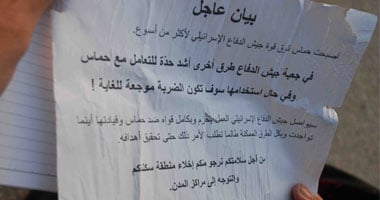 بيان عاجل
أصبحت حماس تذق قوة جيش الدفاع الإسرائيلي لأكثر من أسبوع.
في جعبة جيش الدفاع طرق أخرى أشد حدّة للتعامل مع حماس
وفي حال استخدامها سوف تكون الضربة موجعة للغاية !
سيواصل جيش الدفاع الإسرائيلي العمل بحزم وبكامل قواه ضد حماس وقيادتها أينما
تواجدت وبكل الطرق الممكنة طالما تطلب لأمر ذلك حتى تحقيق أهدافه.
من أجل سلامتكم نرجو مكم إخلاء منطقة سكنكم
والتوجه إلى مراكز المدن.